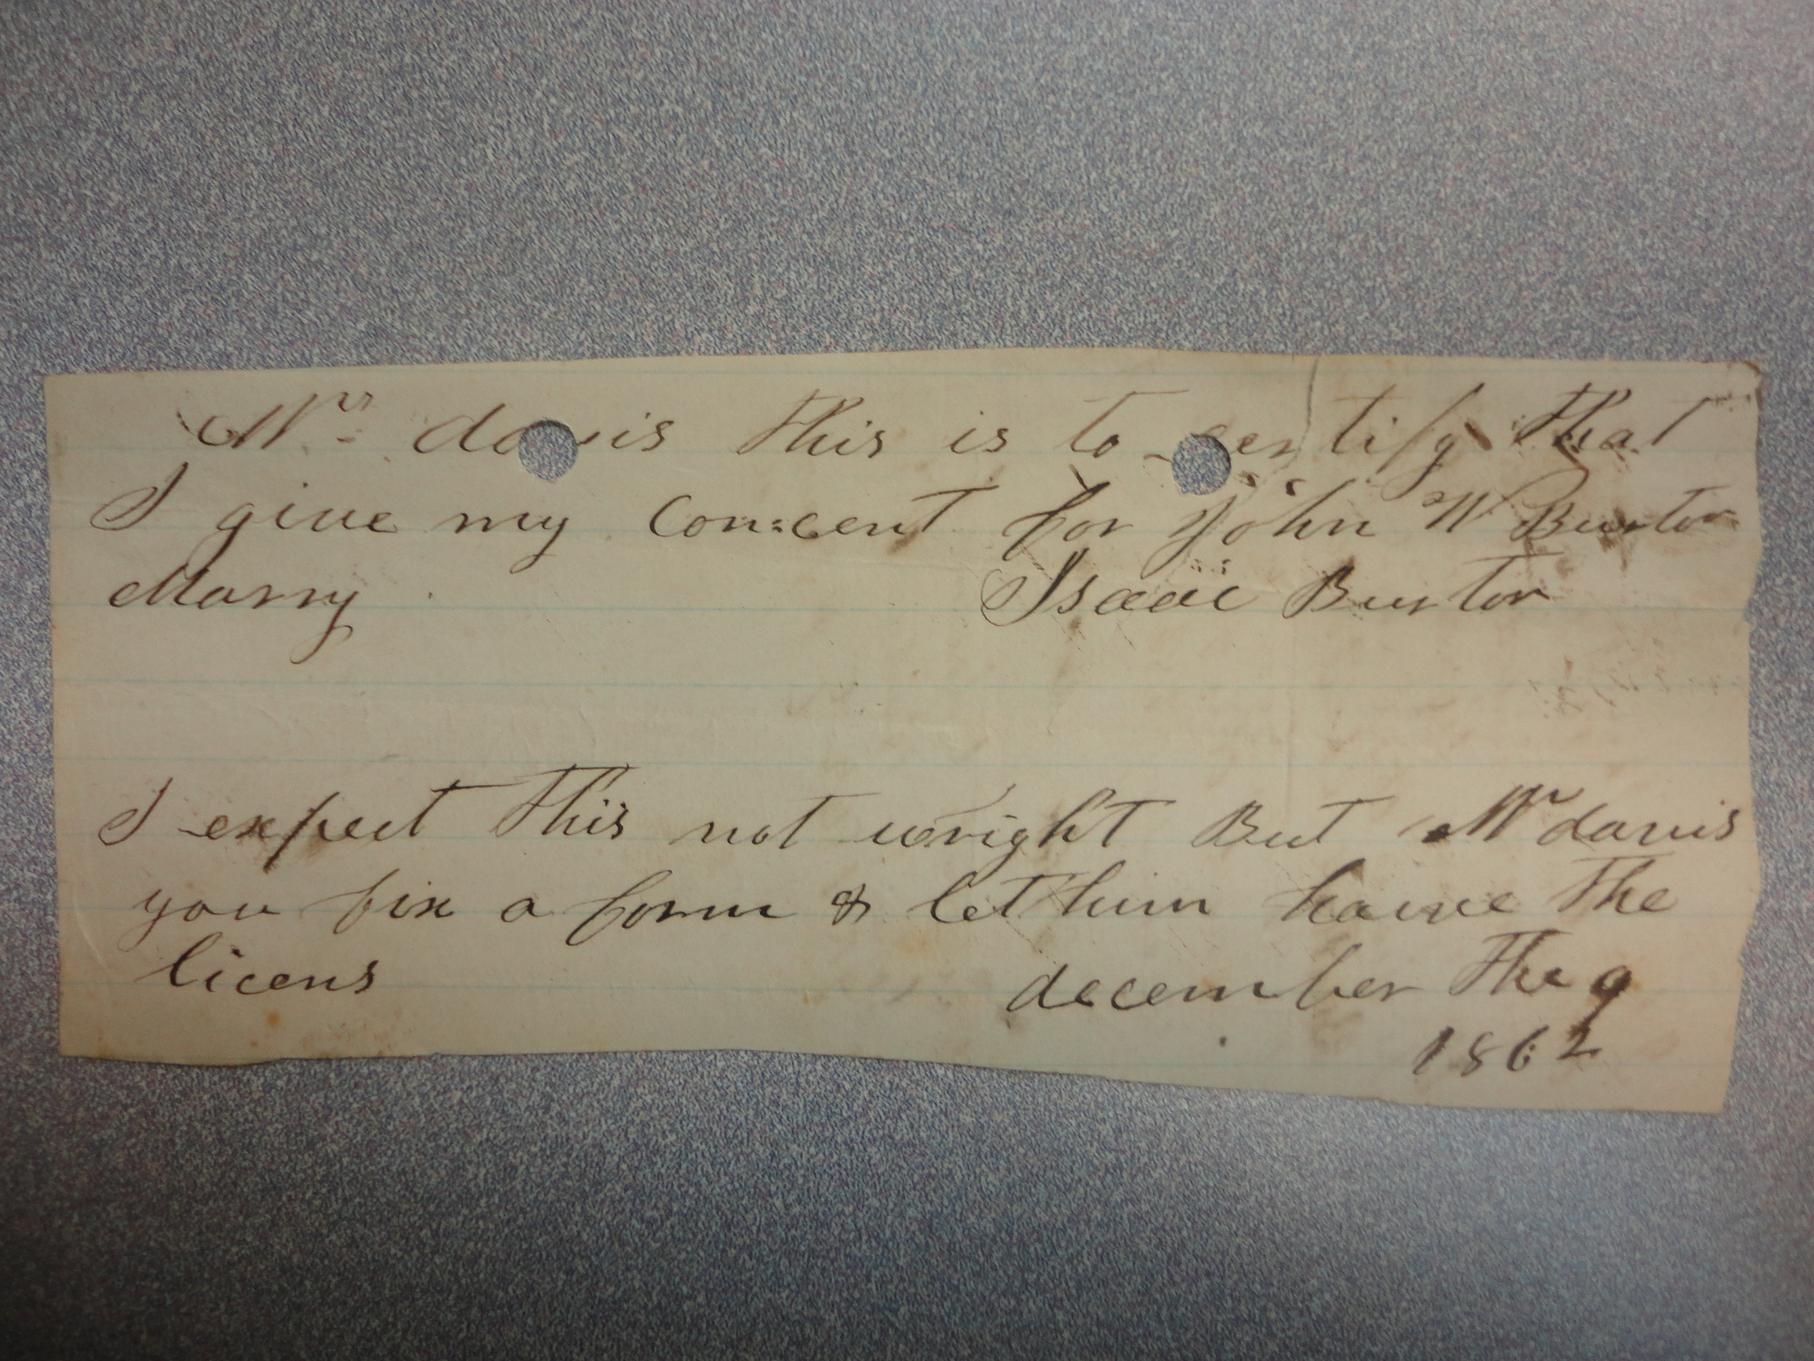 Mr. davis this is to certify that
I give my concent for John W Burton
Marry Isaac Burton
I expect this not wright But Mr davis
you fix a form & let him haive the
licens december the 9
1862